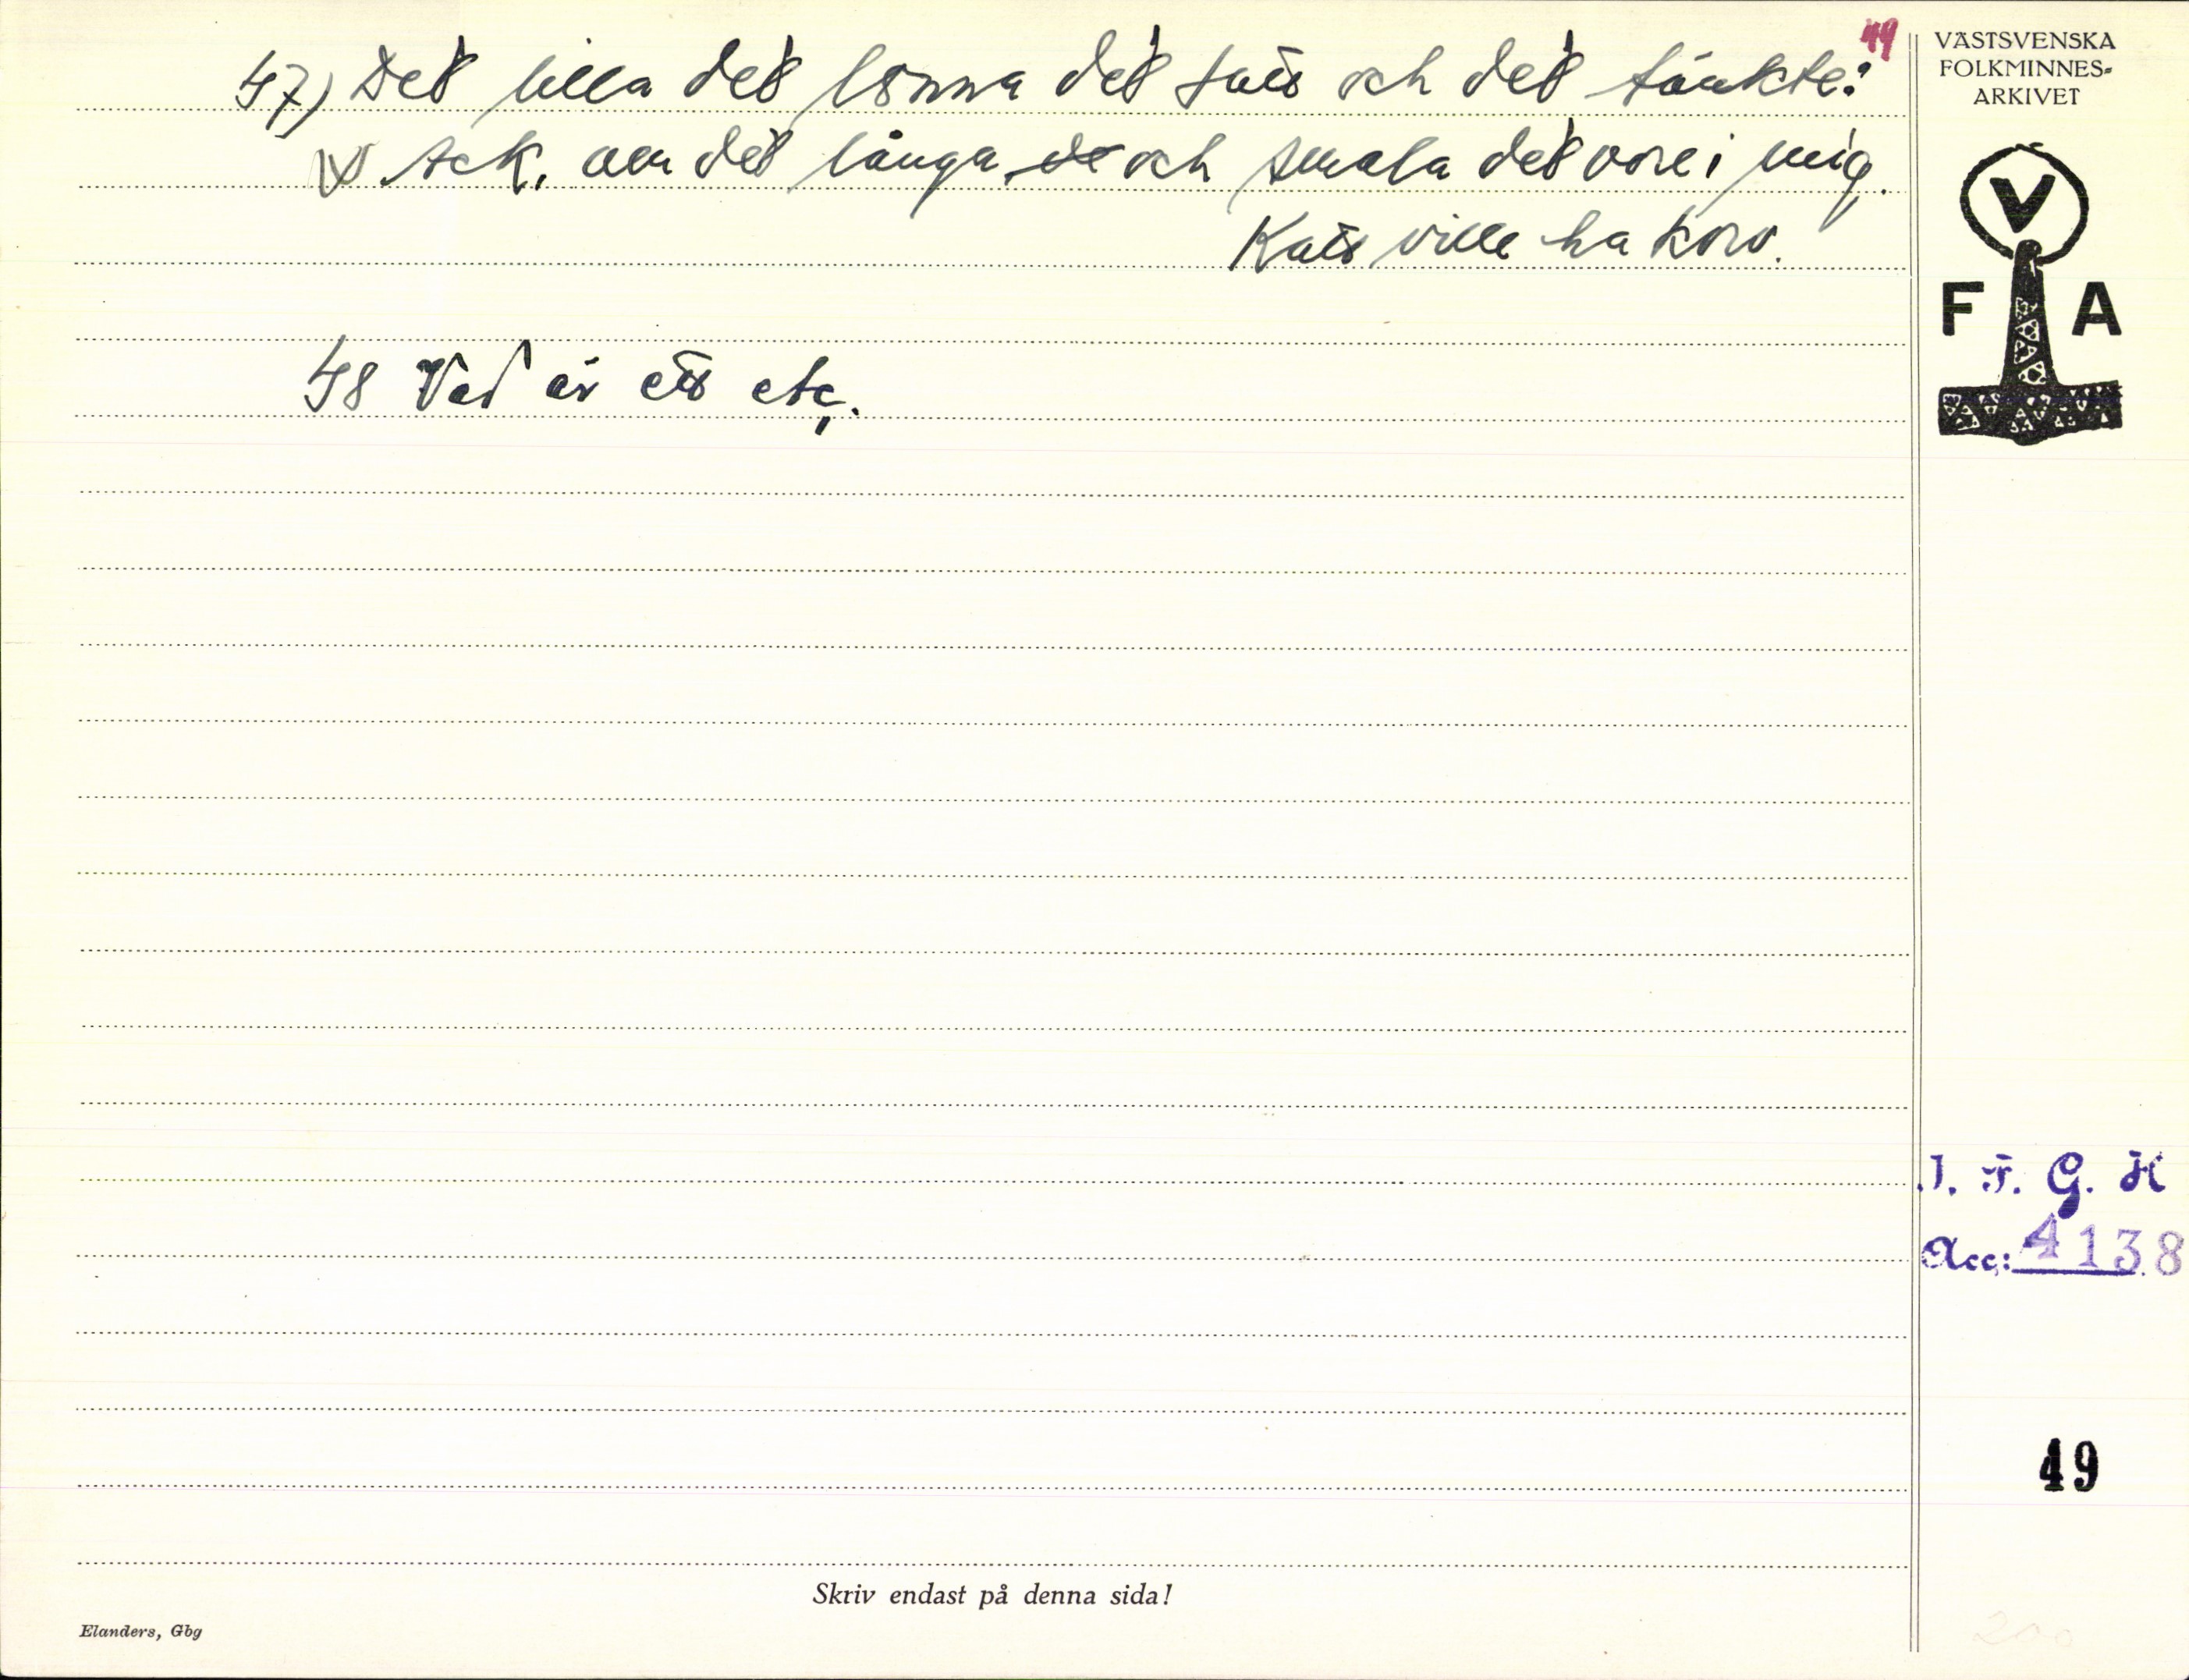 49
47) Det lilla det lönna det satt och det tänkte:
Ack, om det långa de och smala det vore i mig.
Katt ville ha korv.
48 Vad är ett etc.
VÄSTSVENSKA
FOLKMINNES-
ARKIVET
V
F A
I. F. G. H
Acc: 4138
49
Skriv endast på denna sida!
Elanders, Gbg
200